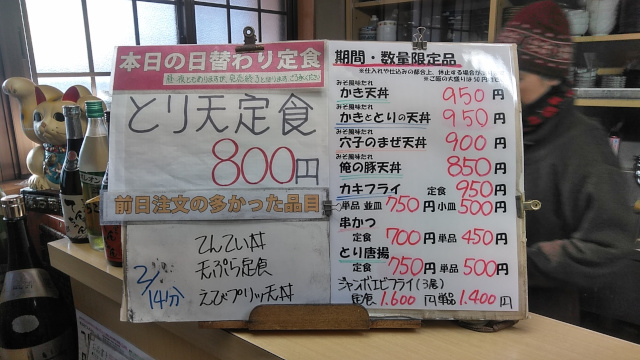 本日の日替わり定食
とり天定食
800円
前日注文の多かった品目
てんてい丼
天ぷら定食
えびプリッツ天丼
2/14分
期間・数量限定品
※仕入れや仕込みの都合上、休止する場合が
※ご飯の大盛りは50円
みそ風味たれ
かき天丼 950円
みそ風味たれ
かきととりの天丼 950円
みそ風味たれ
穴子のまぜ天丼 900円
みそ風味たれ
俺の豚天丼 850円
カキフライ 定食 950円
単品 並皿 750円 小皿 500円
串かつ
定食 700円 単品 450円
とり唐揚
定食 750円 単品 500円
ジャンボエビフライ(3尾)
定食 1.600円 単品 1.400円